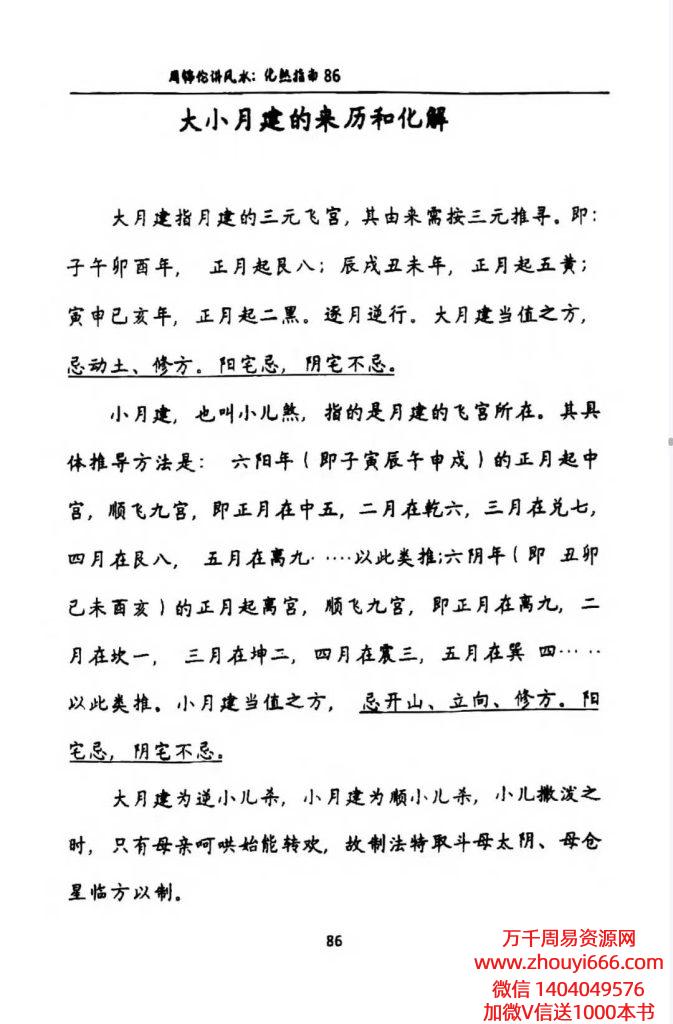 周锦伦讲风水：化煞指南 86
大小月建的来历和化解
大月建指月建的三元飞宫，其由来需按三元推寻。即：
子午卯酉年， 正月起艮八；辰戌丑未年，正月起五黄；
寅申已亥年，正月起二黑。逐月逆行。大月建当值之方，
忌动土、修方。阳宅忌，阴宅不忌。
小月建，也叫小儿煞，指的是月建的飞宫所在。其具
体推导方法是： 六阳年（即子寅辰午申戌）的正月起中
宫，顺飞九宫，即正月在中五，二月在乾六，三月在兑七，
四月在艮八， 五月在离九·····以此类推;六阴年（即 丑卯
已未酉亥）的正月起离宫，顺飞九宫，即正月在离九，二
月在坎一， 三月在坤二，四月在震三，五月在巽 四·····
以此类推。小月建当值之方， 忌开山、立向、修方。阳
宅忌，阴宅不忌。
大月建为逆小儿杀，小月建为顺小儿杀，小儿撒泼之
时，只有母亲呵哄始能转欢，故制法特取斗母太阴、母仓
星临方以制。
86
万千周易资源网
www.zhouyi666.com
微信 1404049576
加微V信送1000本书